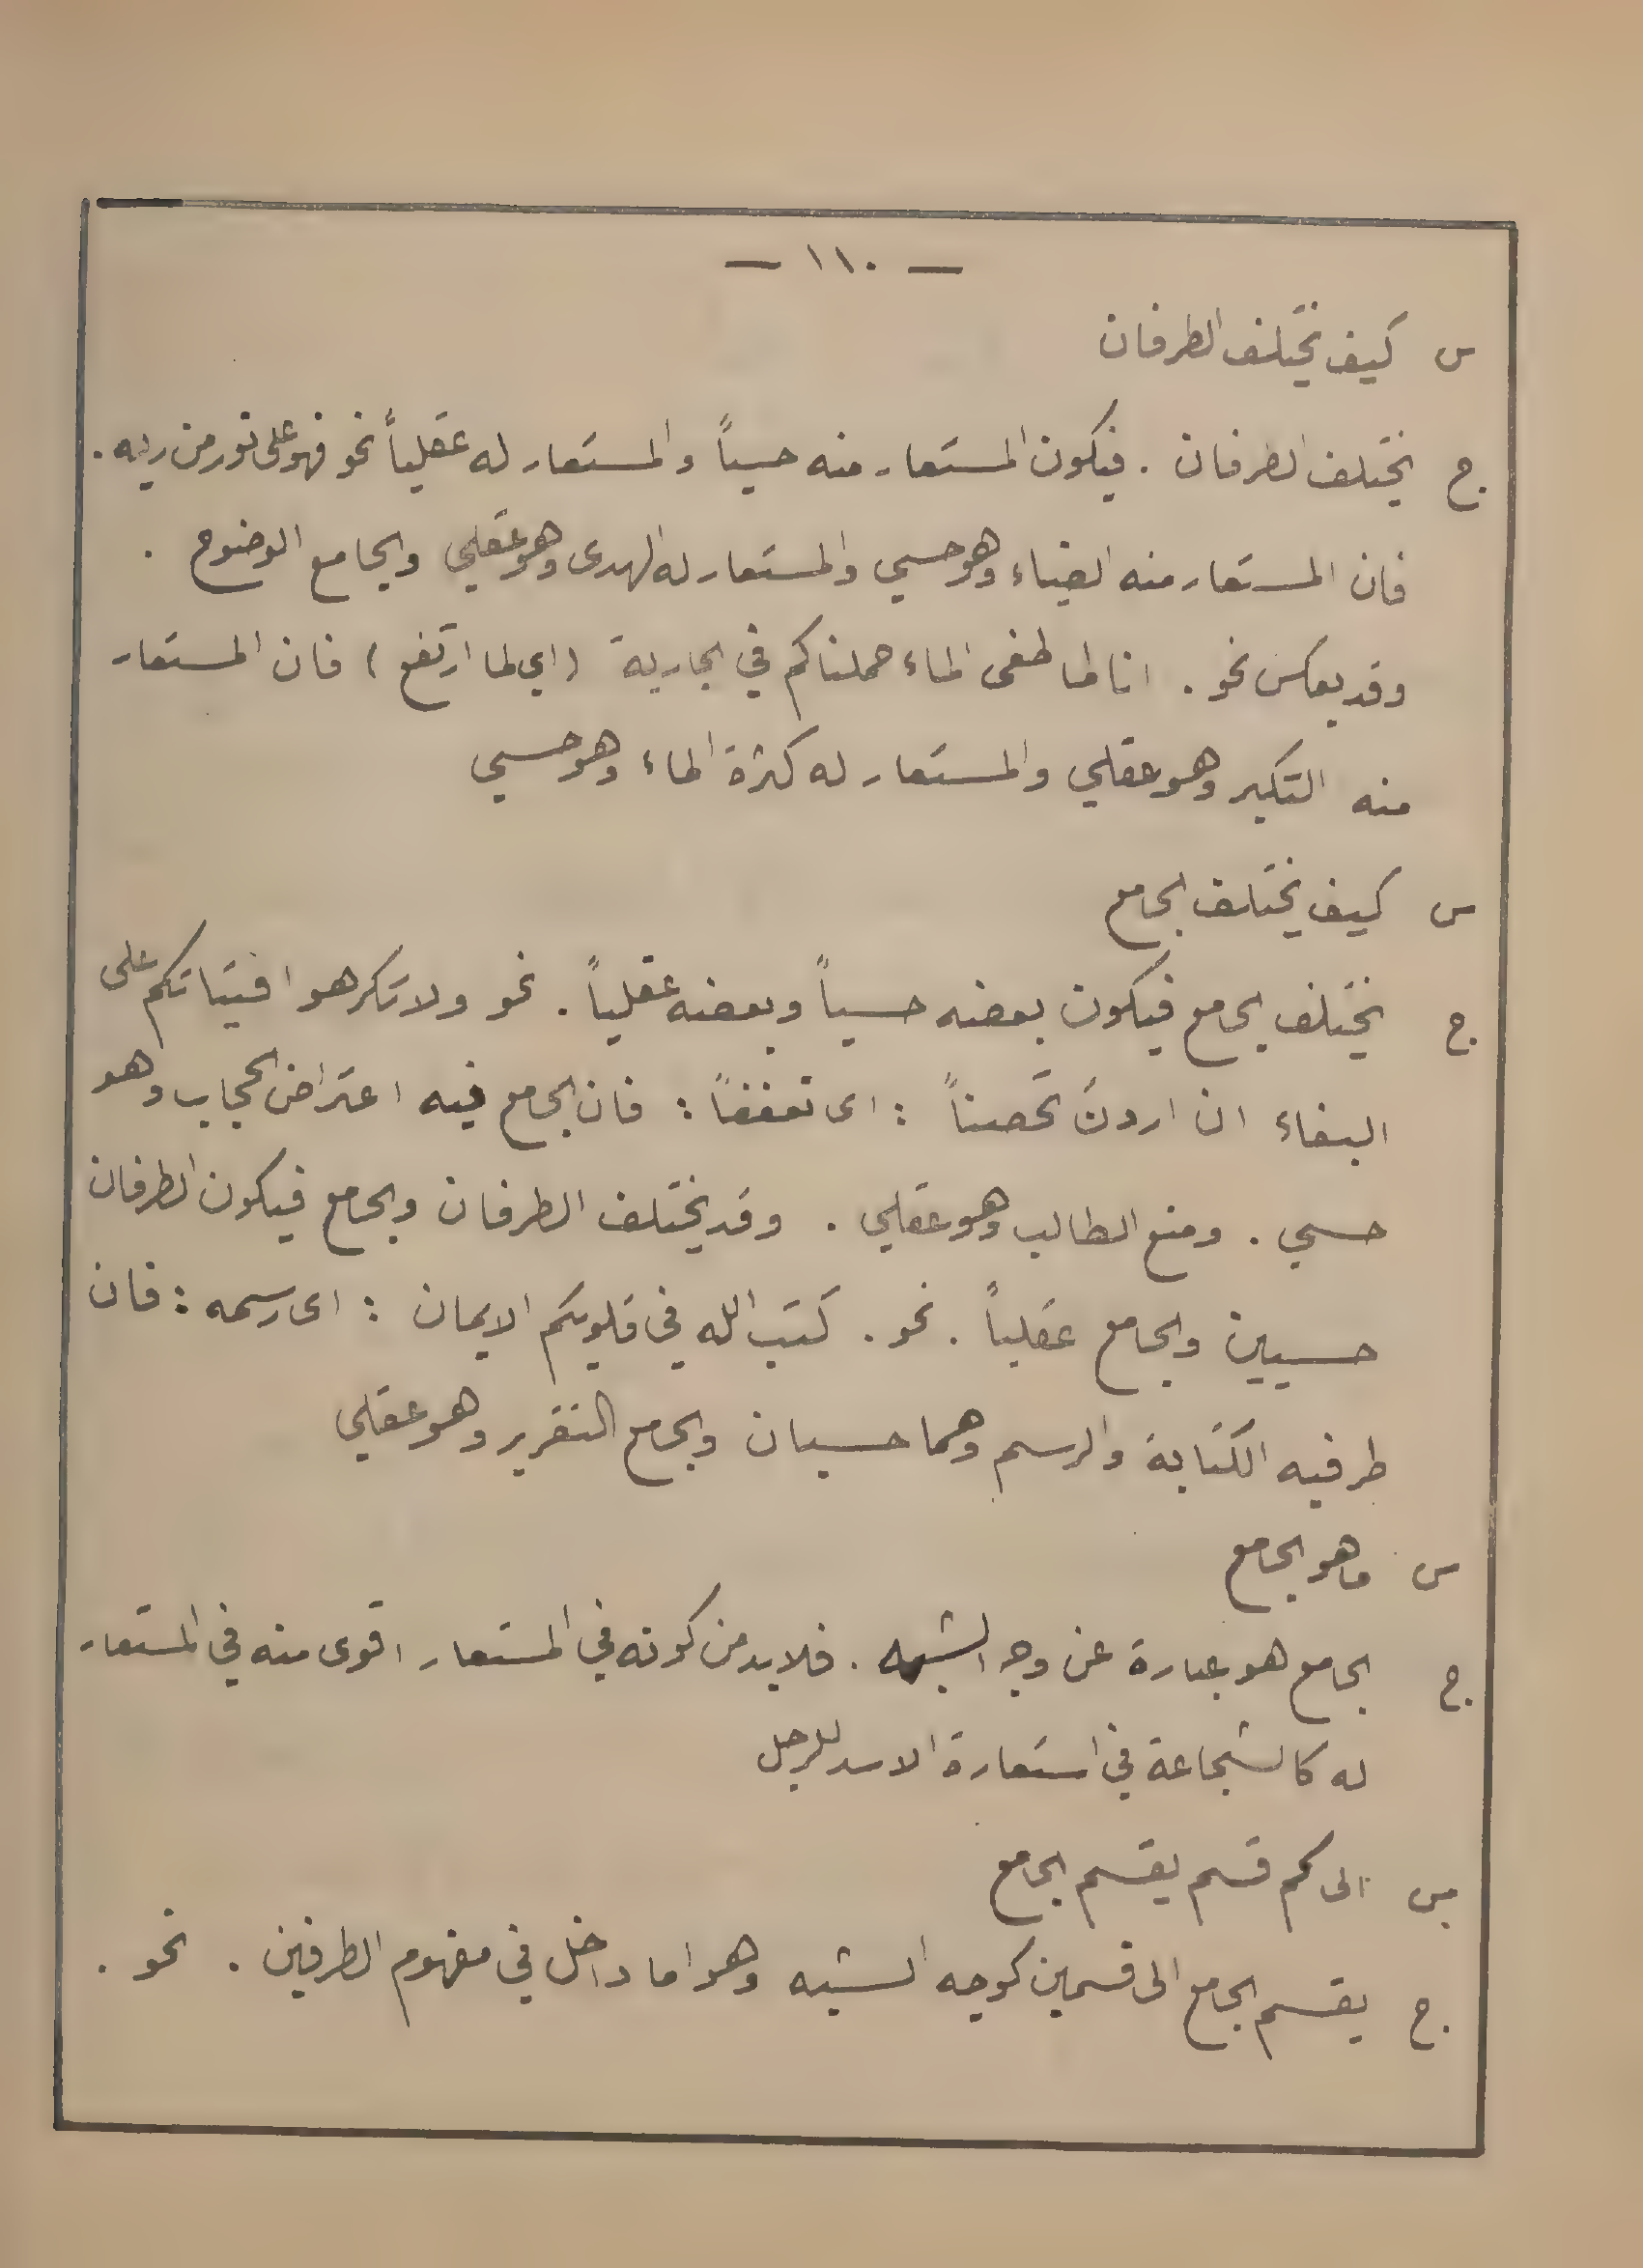 — ١١٠ —
س كيف يختلف الطرفان
ج يختلف الطرفان . فيكون المستعار منه حسياً والمستعار له عقلياً نحو فهو على نور من ربه .
فان المستعار منه الضياء وهو حسي والمستعار له الهدى وهو عقلي والجامع الوضوح .
وقد يعكس نحو . انا لما طغى الماء حملناكم في الجارية (اي لما ارتفع) فان المستعار
منه التكبر وهو عقلي والمستعار له كثرة الماء وهو حسي
س كيف يختلف الجامع
ج يختلف الجامع فيكون بعضه حسياً وبعضه عقلياً . نحو ولا تكرهوا فتياتكم على
البغاء ان اردن تحصناً : اى تعففاً : فان الجامع فيه اعتراض الحجاب وهو
حسي . ومنع الطالب وهو عقلي . وقد يختلف الطرفان والجامع فيكون الطرفان
حسيين والجامع عقلياً . نحو . كتب الله في قلوبكم الايمان : اى رسمه : فان
طرفيه الكتابة والرسم وهما حسيان والجامع التقرير وهو عقلي
س ما هو الجامع
ج الجامع هو عبارة عن وجه الشبه . فلا بد من كونه في المستعار اقوى منه في المستعار
له كالشجاعة في استعارة الاسد للرجل
س الى كم قسم يقسم الجامع
ج يقسم الجامع الى قسمين كوجه الشبه وهو اما داخل في مفهوم الطرفين . نحو .